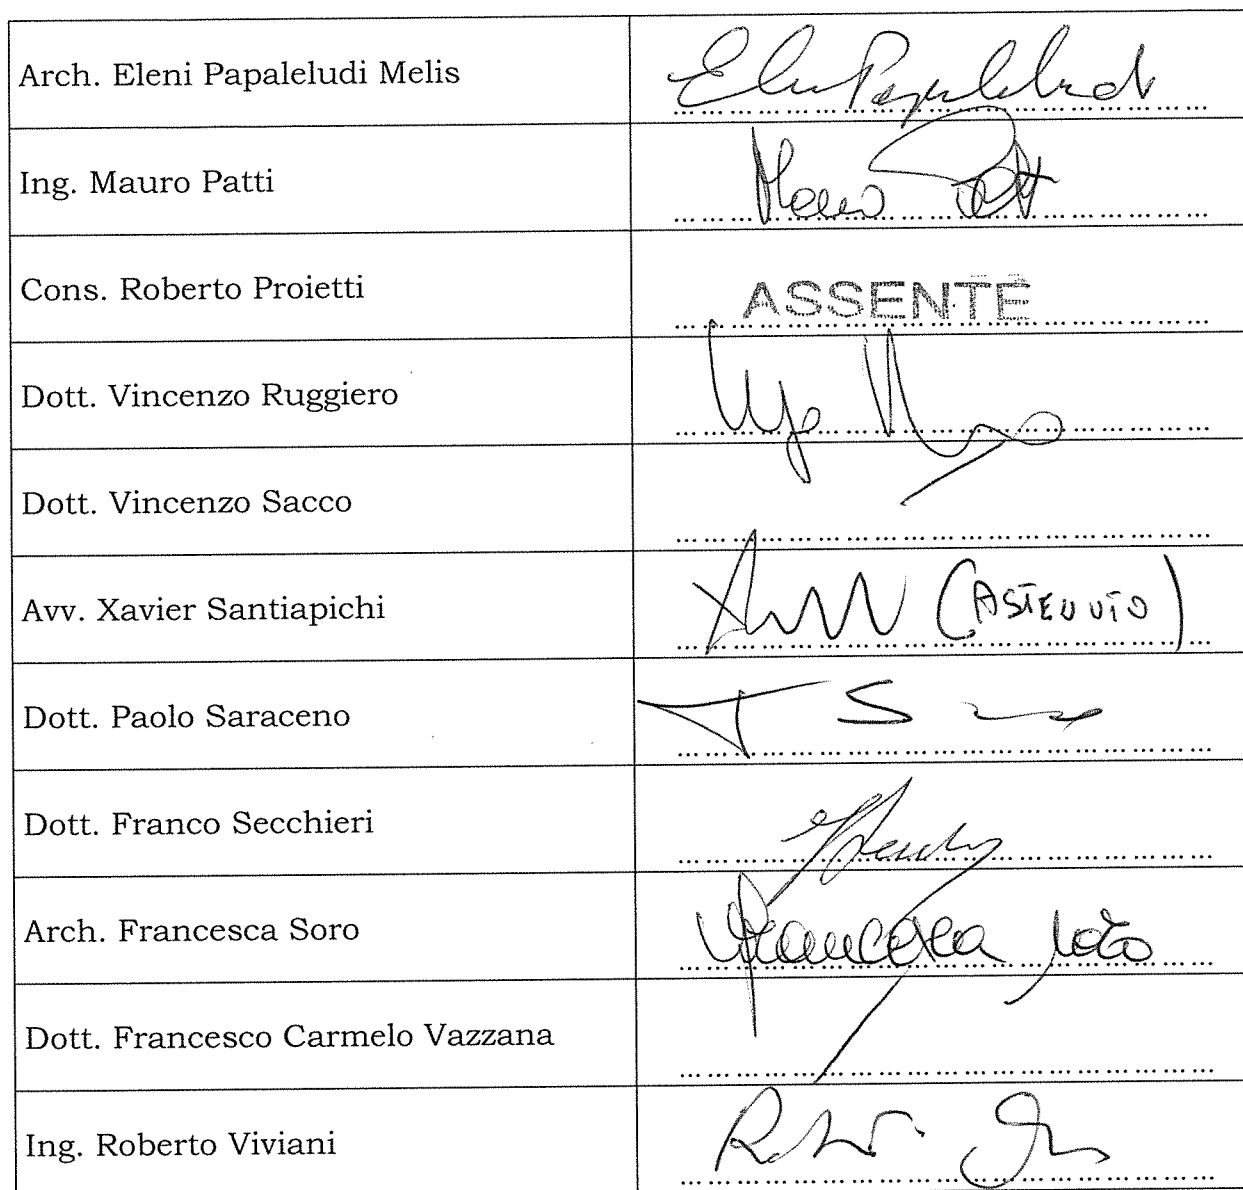 Arch. Eleni Papaleludi Melis
Ing. Mauro Patti
Cons. Roberto Proietti ASSENTE
Dott. Vincenzo Ruggiero
Dott. Vincenzo Sacco
Avv. Xavier Santiapichi (ASTENUTO)
Dott. Paolo Saraceno
Dott. Franco Secchieri
Arch. Francesca Soro Francesca Soro
Dott. Francesco Carmelo Vazzana
Ing. Roberto Viviani